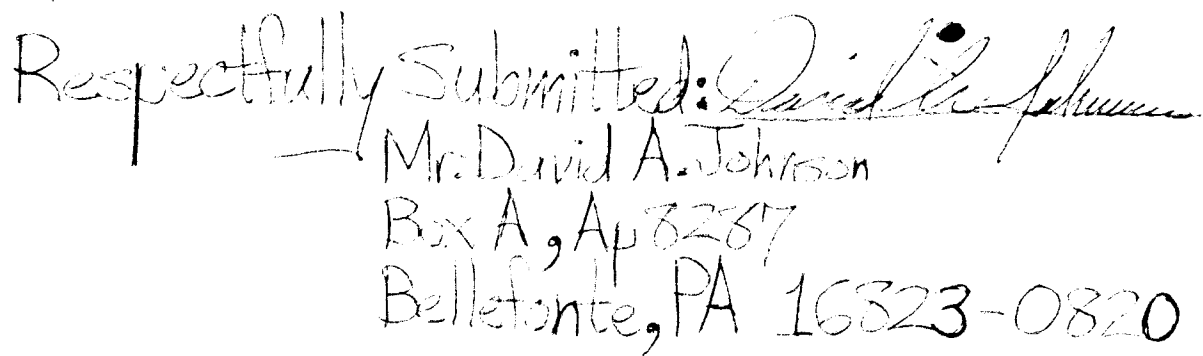 Respectfully Submitted: David A. Johnson
Mr. David A. Johnson
Box A, Ap 8287
Bellefonte, PA 16823-0820